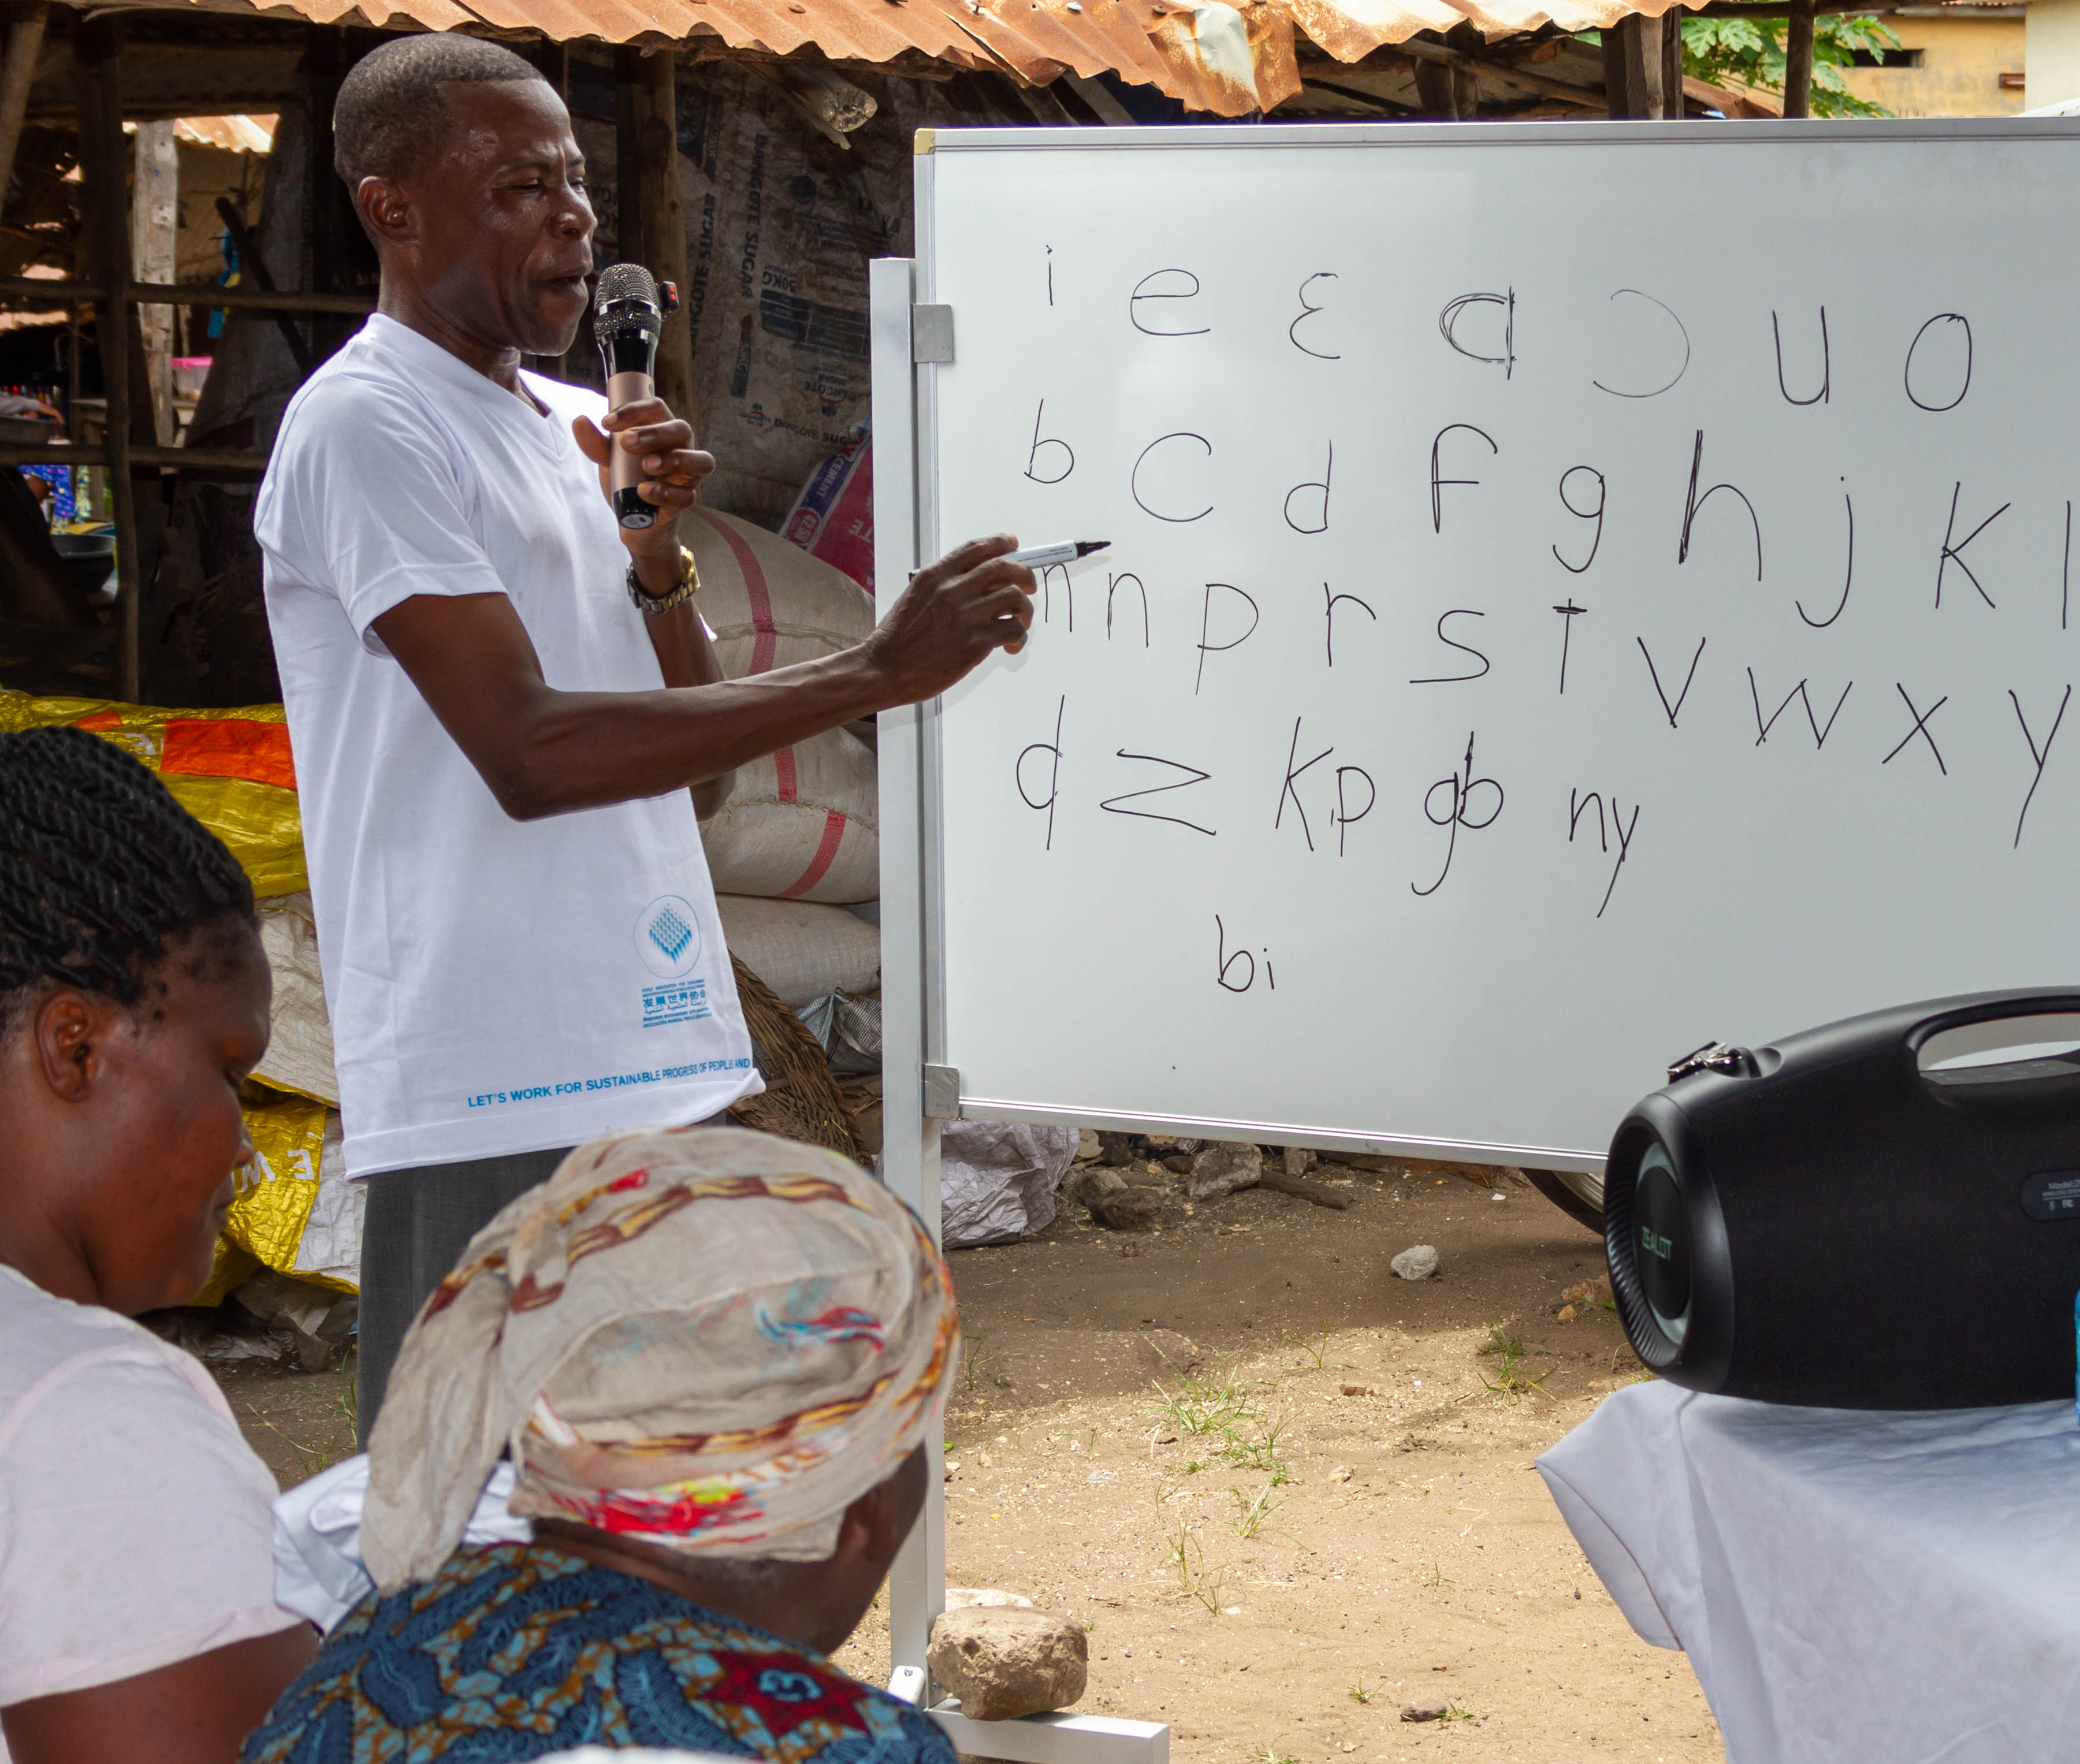 i e ɛ a ɔ u o
b c d f g h j k l
n n p r s t v w x y
q z kp gb ny
bi
DANGOTE SUGAR
DANGOTE SUGAR
30KG
CEMENT
42.5
发展世界协会
LET'S WORK FOR SUSTAINABLE PROGRESS OF PEOPLE AND
ZEALOT